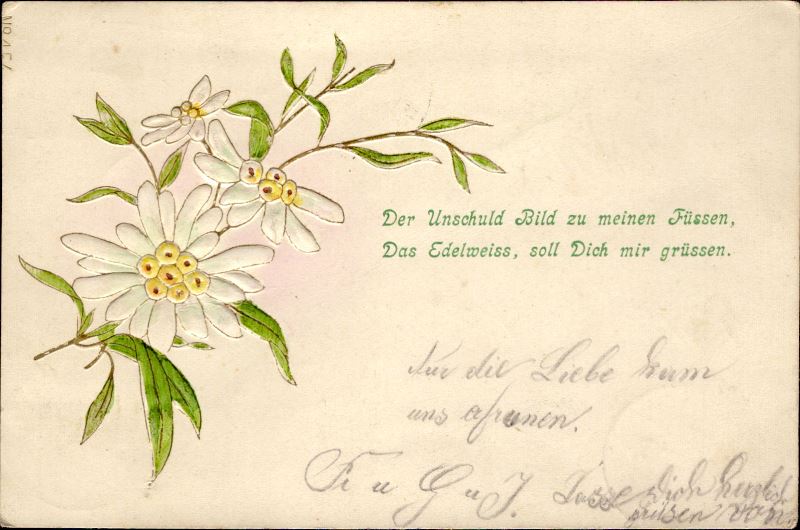 Der Unschuld Bild zu meinen Füssen,
Das Edelweiss, soll Dich mir grüssen.
Nur die Liebe kann
uns
Fr u G u J. Lasse Dich herzlich
grüßen von